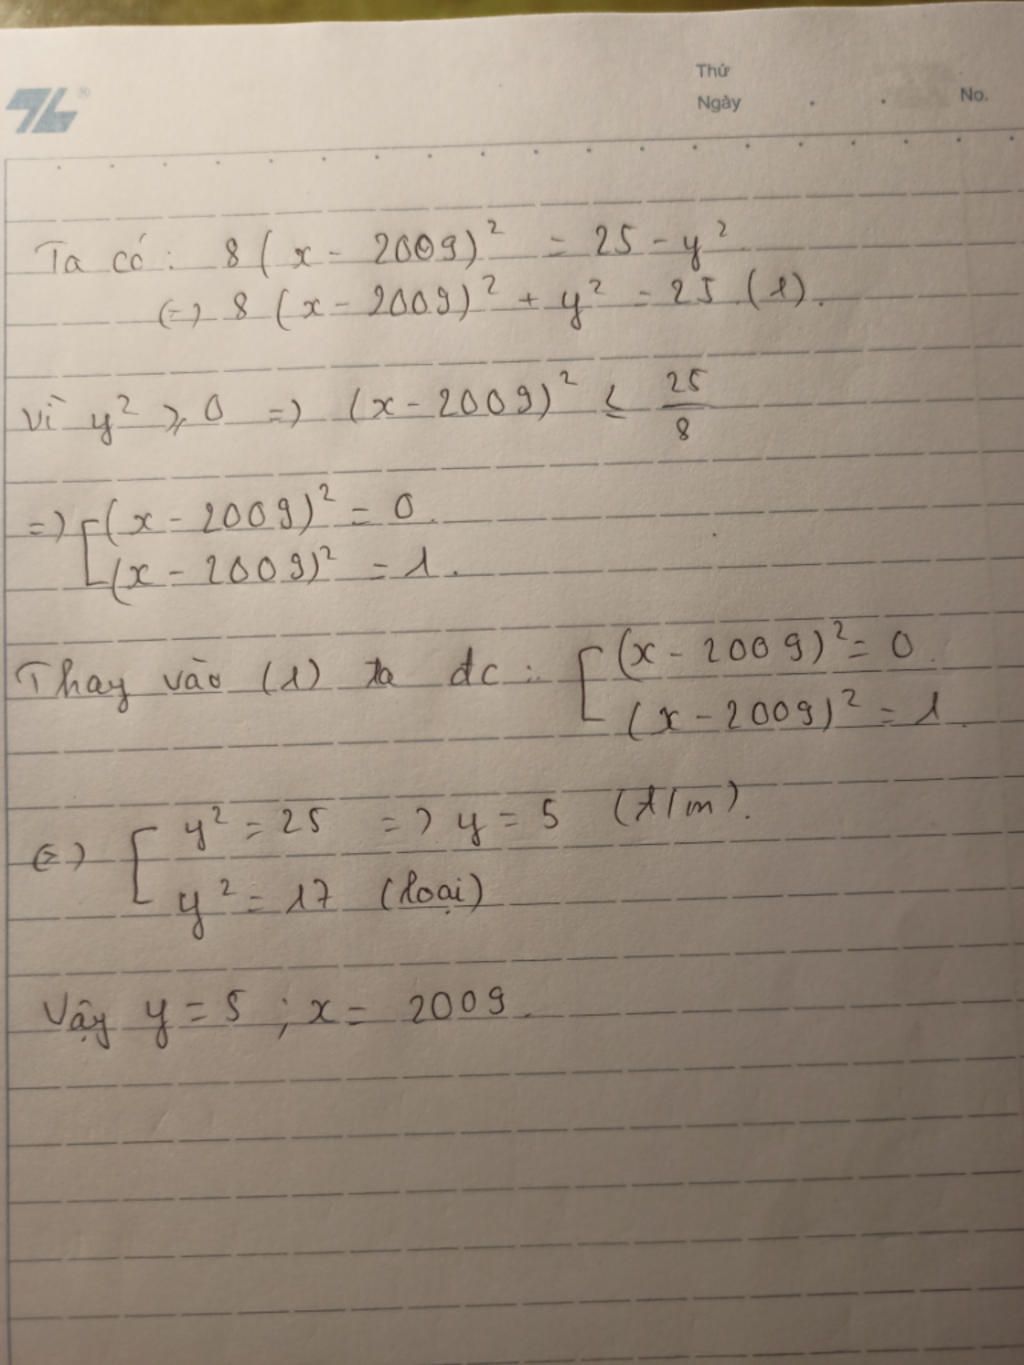 Thứ
Ngày . . No.
Ta có: 8(x - 2009)² = 25 - y²
(=) 8(x - 2009)² + y² = 25 (1).
Vì y² ≥ 0 => (x - 2009)² ≤ 25/8
=> [(x - 2009)² = 0.
(x - 2009)² = 1.
Thay vào (1) ta đc: [(x - 2009)² = 0.
(x - 2009)² = 1.
(=) [y² = 25 => y = 5 (t/m).
y² = 17 (loại)
Vậy y = 5 ; x = 2009.